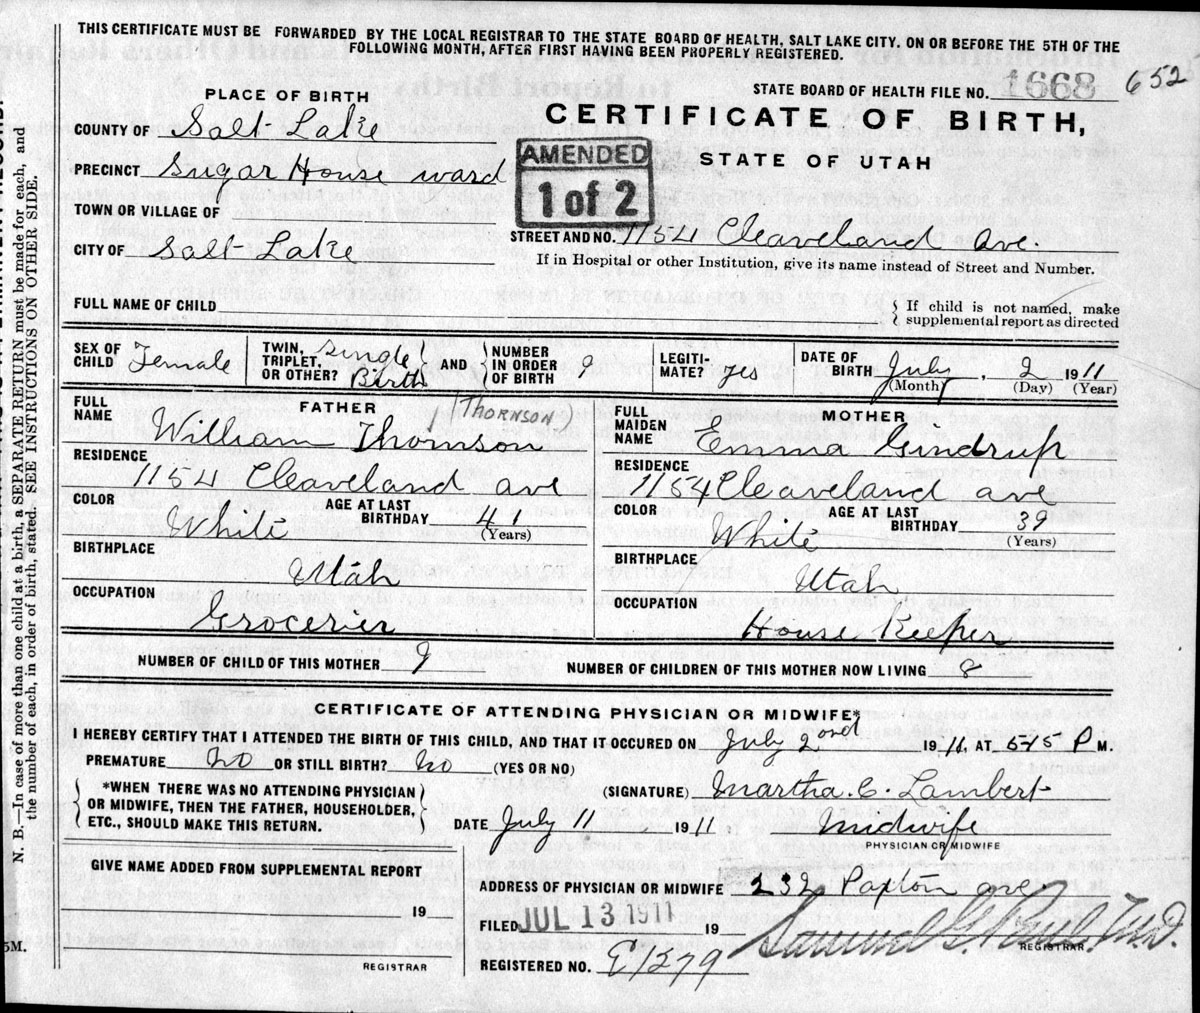 THIS CERTIFICATE MUST BE FORWARDED BY THE LOCAL REGISTRAR TO THE STATE BOARD OF HEALTH, SALT LAKE CITY, ON OR BEFORE THE 5TH OF THE
FOLLOWING MONTH, AFTER FIRST HAVING BEEN PROPERLY REGISTERED.
STATE BOARD OF HEALTH FILE NO. 1668 652
PLACE OF BIRTH
CERTIFICATE OF BIRTH,
COUNTY OF Salt Lake
AMENDED
STATE OF UTAH
PRECINCT Sugar House ward
1 of 2
TOWN OR VILLAGE OF
STREET AND NO. 1154 Cleaveland Ave.
CITY OF Salt Lake
If in Hospital or other Institution, give its name instead of Street and Number.
FULL NAME OF CHILD
If child is not named, make
supplemental report as directed
SEX OF CHILD Female
TWIN, TRIPLET, OR OTHER? Single Birth
AND NUMBER IN ORDER OF BIRTH 9
LEGITIMATE? yes
DATE OF BIRTH July, 2 1911
(Month) (Day) (Year)
FATHER
FULL NAME William Thomson (THORNSON)
RESIDENCE
1154 Cleaveland ave
COLOR White AGE AT LAST BIRTHDAY 41
(Years)
BIRTHPLACE
Utah
OCCUPATION
Grocerier
MOTHER
FULL MAIDEN NAME Emma Gindrup
RESIDENCE
1154 Cleaveland ave
COLOR White AGE AT LAST BIRTHDAY 39
(Years)
BIRTHPLACE
Utah
OCCUPATION
House Keeper
NUMBER OF CHILD OF THIS MOTHER 9 NUMBER OF CHILDREN OF THIS MOTHER NOW LIVING 8
CERTIFICATE OF ATTENDING PHYSICIAN OR MIDWIFE*
I HEREBY CERTIFY THAT I ATTENDED THE BIRTH OF THIS CHILD, AND THAT IT OCCURED ON July 2ond 1911, AT 5-15 P M.
PREMATURE No OR STILL BIRTH? No (YES OR NO)
*WHEN THERE WAS NO ATTENDING PHYSICIAN
OR MIDWIFE, THEN THE FATHER, HOUSEHOLDER,
ETC., SHOULD MAKE THIS RETURN.
(SIGNATURE) Martha. C. Lambert
DATE July 11 1911. Midwife
PHYSICIAN OR MIDWIFE
GIVE NAME ADDED FROM SUPPLEMENTAL REPORT
19
REGISTRAR
ADDRESS OF PHYSICIAN OR MIDWIFE 232 Paxton ave
FILED JUL 13 1911 19 Samuel G. Paul M.D.
REGISTRAR
REGISTERED NO. E1279
N. B.—In case of more than one child at a birth, a SEPARATE RETURN must be made for each, and
the number of each, in order of birth, stated. SEE INSTRUCTIONS ON OTHER SIDE.
5M.